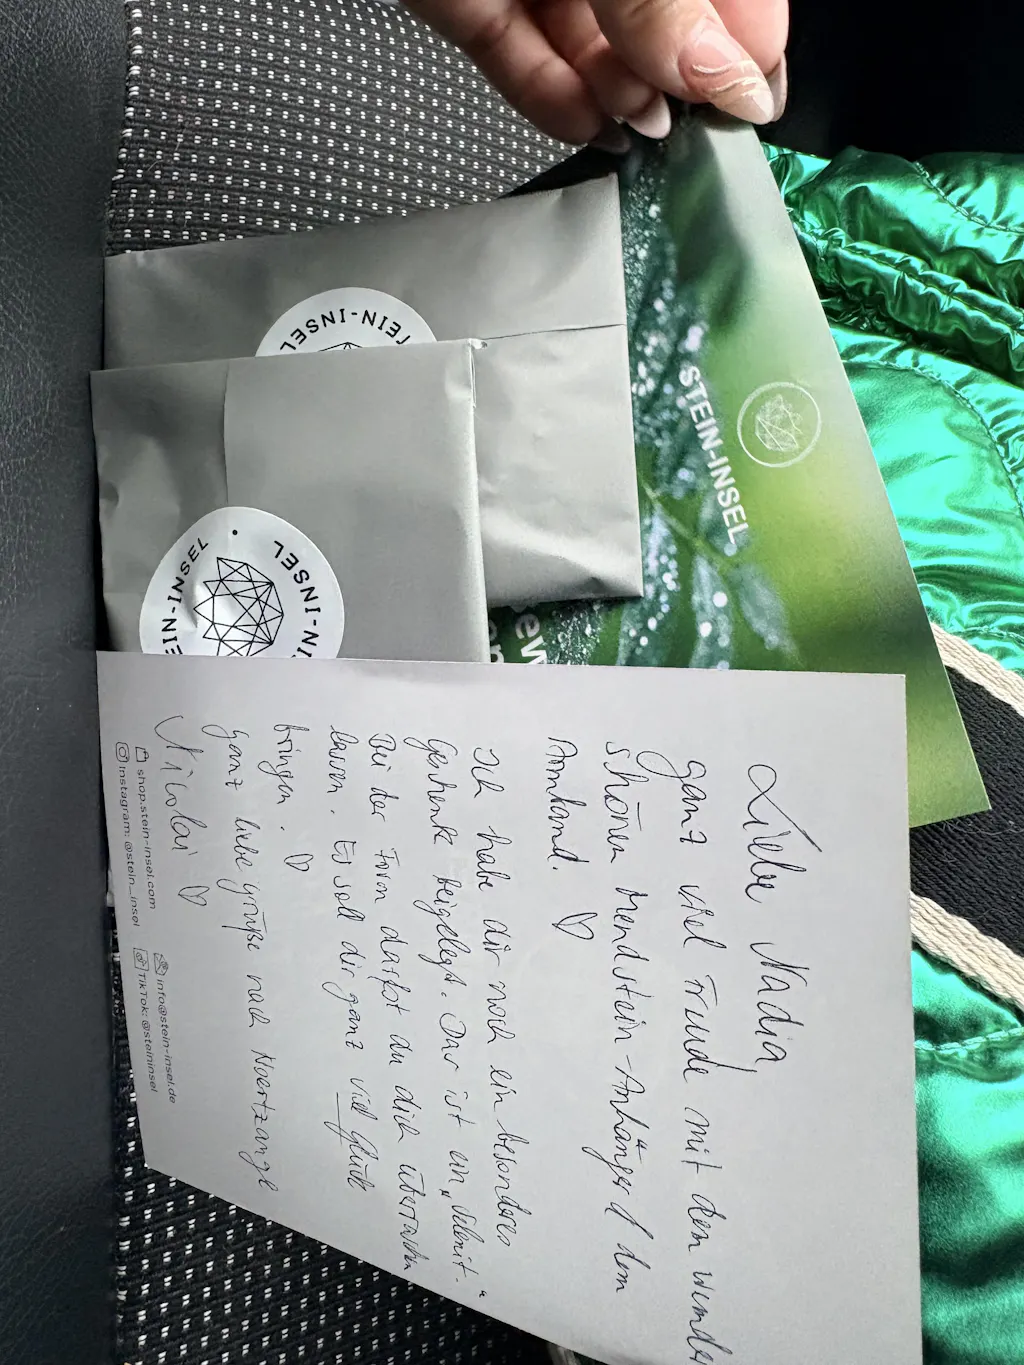 STEIN-INSEL
STEIN-INSEL
STEIN-INSEL
Liebe Nadia
ganz viel Freude mit dem wunder
schönen Mondstein-Anhänger & dem
Armband. ♡
Ich habe dir noch ein besonderes
Geschenk beigelegt. Das ist ein „Selenit."
Bei der Form darfst du dich überraschen
lassen. Es soll dir ganz viel Glück
bringen. ♡
ganz liebe grüße nach Noertzange
Nicolai ♡
shop.stein-insel.com
info@stein-insel.de
Instagram: @stein_insel
TikTok: @steininsel